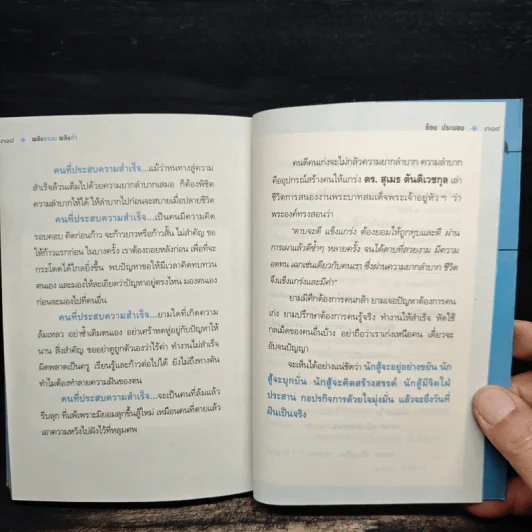 ๓๑๘ พลังธรรม พลังทำ
คนที่ประสบความสำเร็จ...แม้ว่าหนทางสู่ความ
สำเร็จล้วนเต็มไปด้วยความยากลำบากเสมอ ก็ต้องพิชิต
ความลำบากให้ได้ ให้ลำบากไปก่อนจะสบายเมื่อปลายชีวิต
คนที่ประสบความสำเร็จ...เป็นคนมีความคิด
รอบคอบ คิดก่อนก้าว จะก้าวยาวหรือก้าวสั้น ไม่สำคัญ ขอ
ให้ก้าวไปก่อน ในบางครั้ง เราต้องถอยหลังก่อน เพื่อที่จะ
กระโดดได้ไกลยิ่งขึ้น พบปัญหาขอให้มีเวลาคิดทบทวน
ตนเอง และมองให้ละเอียดว่าปัญหาอยู่ตรงไหน มองตนเอง
ก่อนจะมองไปที่คนอื่น
คนที่ประสบความสำเร็จ...ยามใดที่เกิดความ
ล้มเหลว อย่าซ้ำเติมตนเอง อย่าเศร้าหดหู่อยู่กับปัญหาให้
นาน สิ่งสำคัญ ขออย่าดูถูกตัวเองว่าไร้ค่า ทำงานไม่สำเร็จ
ผิดพลาดเป็นครู เรียนรู้และก้าวต่อไปได้ ยังไม่ถึงทางตัน
ทำไมต้องทำลายความฝันของตน
คนที่ประสบความสำเร็จ...จะเป็นคนที่ล้มแล้ว
รีบลุก ที่แพ้เพราะมิยอมลุกขึ้นสู้ใหม่ เหมือนคนที่ตายแล้ว
เอาความหวังไปฝังไว้ที่หลุมศพ
ช้อน ประนอม ๓๑๙
คนดีคนเก่งจะไม่กลัวความยากลำบาก ความลำบาก
คืออุปกรณ์สร้างคนให้แกร่ง ดร. สุเมธ ตันติเวชกุล เล่า
ชีวิตการสนองงานพระบาทสมเด็จพระเจ้าอยู่หัว ฯ ว่า
พระองค์ทรงสอนว่า
"ดาบจะดี แข็งแกร่ง ต้องยอมให้ถูกทุบและตี ผ่าน
การเผาแล้วตีซ้ำๆ หลายครั้ง จนได้ดาบที่สวยงาม มีความ
อดทน เฉกเช่นเดียวกับคนเรา ซึ่งผ่านความยากลำบาก ชีวิต
จึงแข็งแกร่งและมีค่า"
ยามมีศึกต้องการคนกล้า ยามเจอปัญหาต้องการคน
เก่ง ยามปรึกษาต้องการคนรู้จริง ทำงานให้สำเร็จ หัดใช้
กลเม็ดของคนอื่นบ้าง อย่าถือว่าเราเก่งเหนือคน เดี๋ยวจะ
อับจนปัญญา
จะเห็นได้อย่างแน่ชัดว่า นักสู้จะอยู่อย่างขยัน นัก
สู้จะบุกบั่น นักสู้จะคิดสร้างสรรค์ นักสู้มีจิตใฝ่
ประสาน กอปรกิจการด้วยใจมุ่งมั่น แล้วจะถึงวันที่
ฝันเป็นจริง